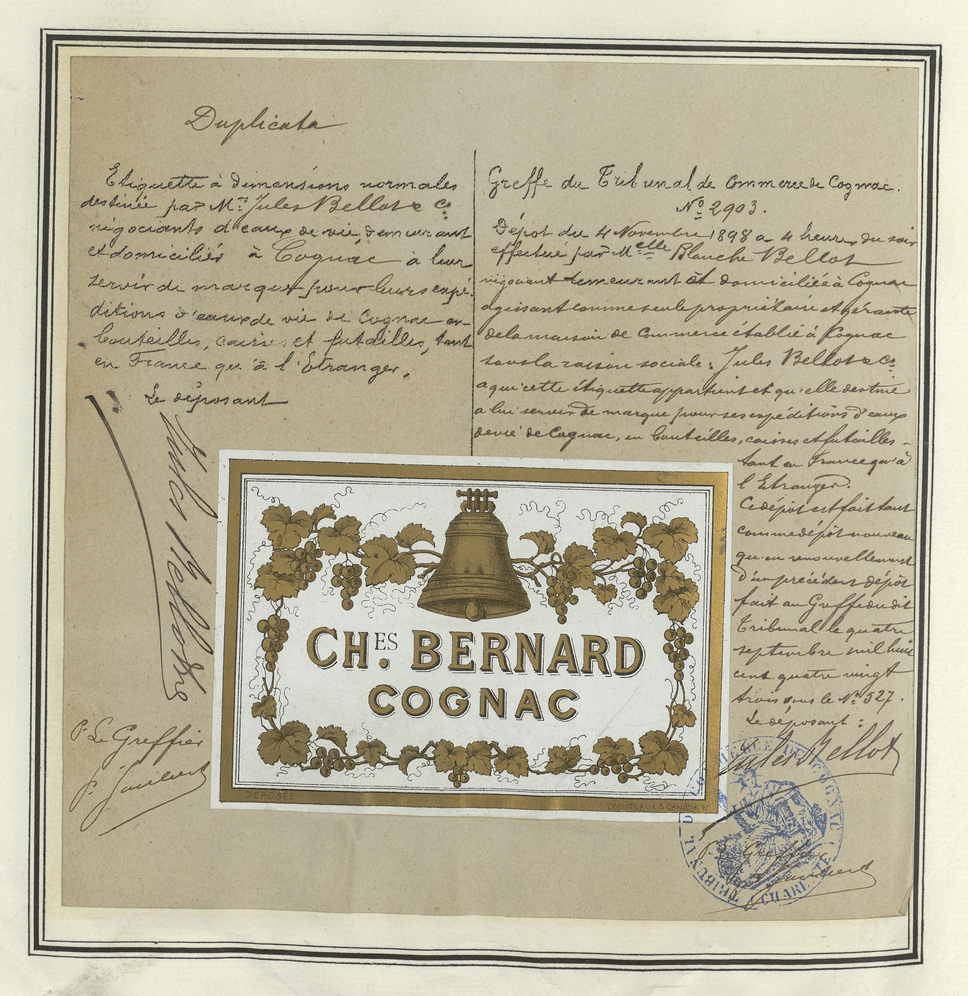 Duplicata
Etiquette à dimensions normales
destinée par Mrs Jules Bellot & Co
négociants d'eaux de vie demeurant
et domiciliés à Cognac à leur
servir de marque pour leurs expé-
ditions d'eaux de vie de Cognac en
bouteilles, caisses et futailles, tant
en France qu'à l'Etranger.
Le déposant
Jules Bellot & Co
Pr Le Greffier
Greffe du Tribunal de Commerce de Cognac.
No 2903.
Dépot du 4 Novembre 1898 a 4 heures du soir
effectué par Melle Blanche Bellot
négociant demeurant et domiciliée à Cognac
agissant comme seule propriétaire et gérante
de la maison de Commerce établie à Cognac
sous la raison sociale: Jules Bellot & Co
a qui cette étiquette appartient et qu'elle destine
a lui servir de marque pour ses expéditions d'eaux
de vie de Cognac, en bouteilles, caisses et futailles -
tant en France qu'à
l'Etranger.
Ce dépôt est fait tant
comme dépôt nouveau
qu'en renouvellement
d'un précédent dépôt
fait au Greffe du dit
Tribunal le quatre
septembre mil huit
cent quatre vingt
trois sous le No 527.
Le déposant:
Jules Bellot
CHES BERNARD
COGNAC
DÉPOSÉE
TRIBUNAL DE COGNAC
CHARENTE
Pr Le Greffier